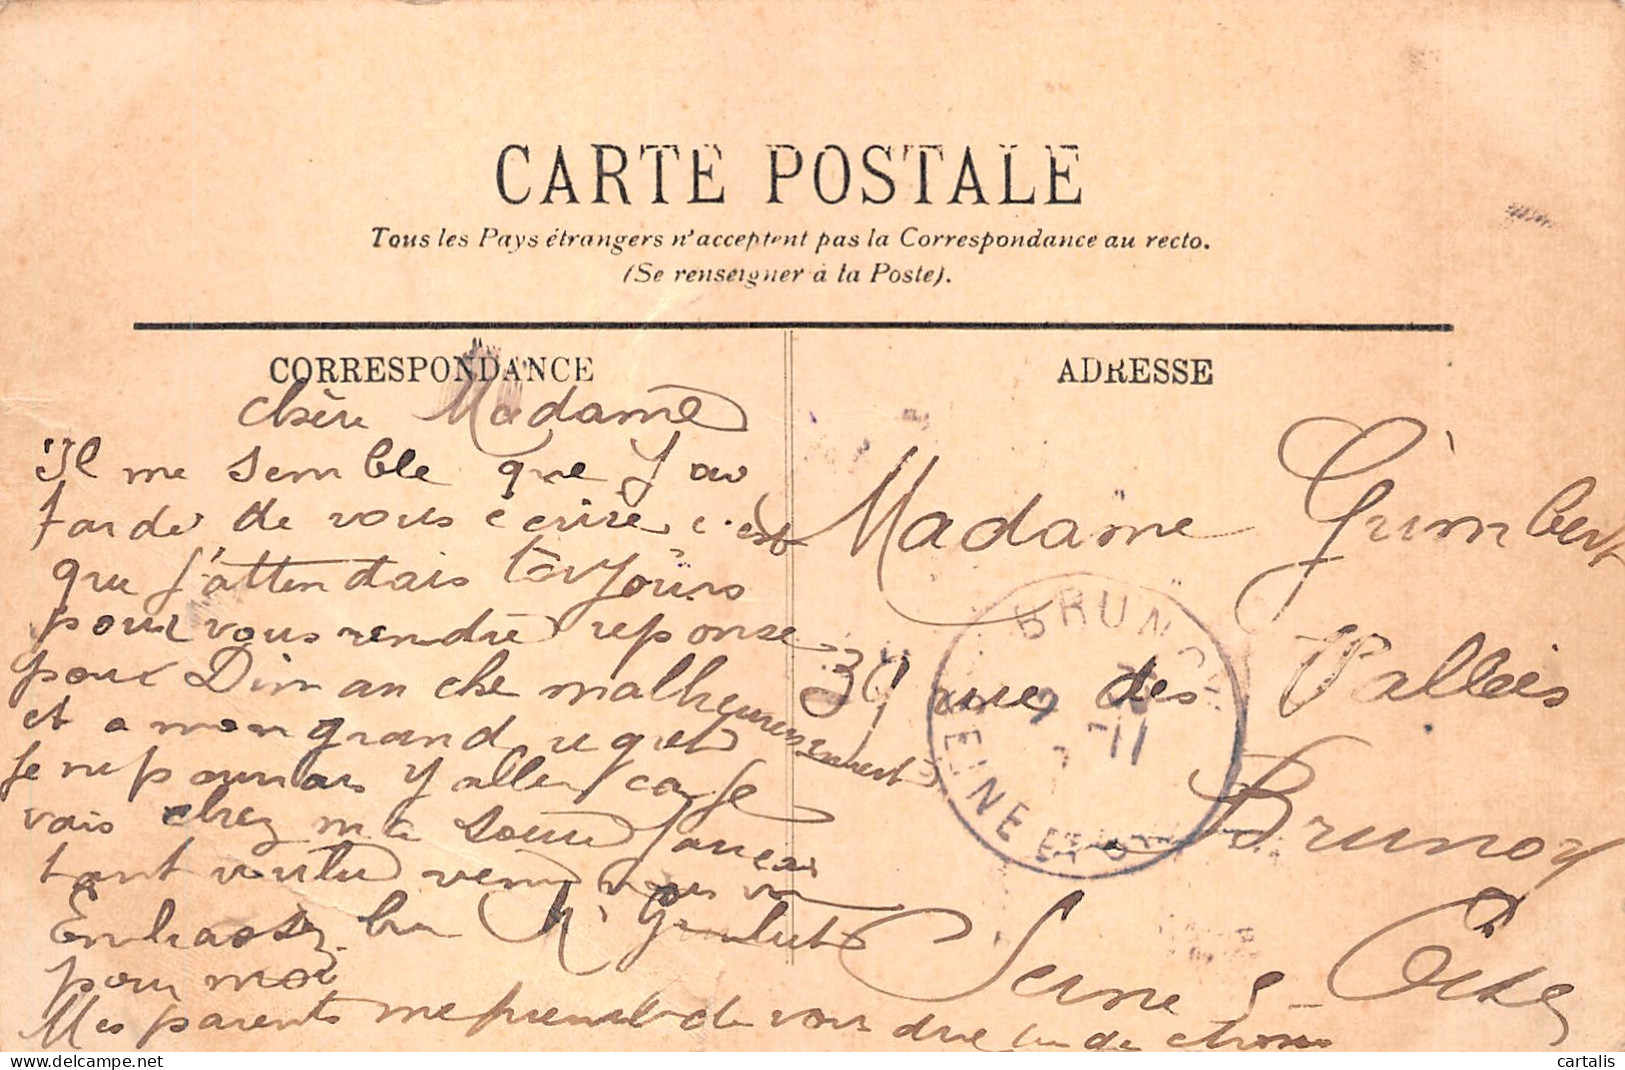 CARTE POSTALE
Tous les Pays étrangers n'acceptent pas la Correspondance au recto.
(Se renseigner à la Poste).
CORRESPONDANCE
chère Madame
Il me semble que j'ai
tardé de vous écrire c'est
que j'attendais toujours
pour vous rendre réponse
pour Dimanche malheureusement
et a mon grand regret
je ne pourrais y aller car je
vais chez ma soeur
tant voulu venir vous voir
Embrassez bien Mr Grimbert
pour moi
Mes parents me prient de vous dire de choses
ADRESSE
Madame Grimbert
39 rue des Vallées
Brunoy
Seine & Oise
BRUNOY
11
SEINE ET OISE
cartalis